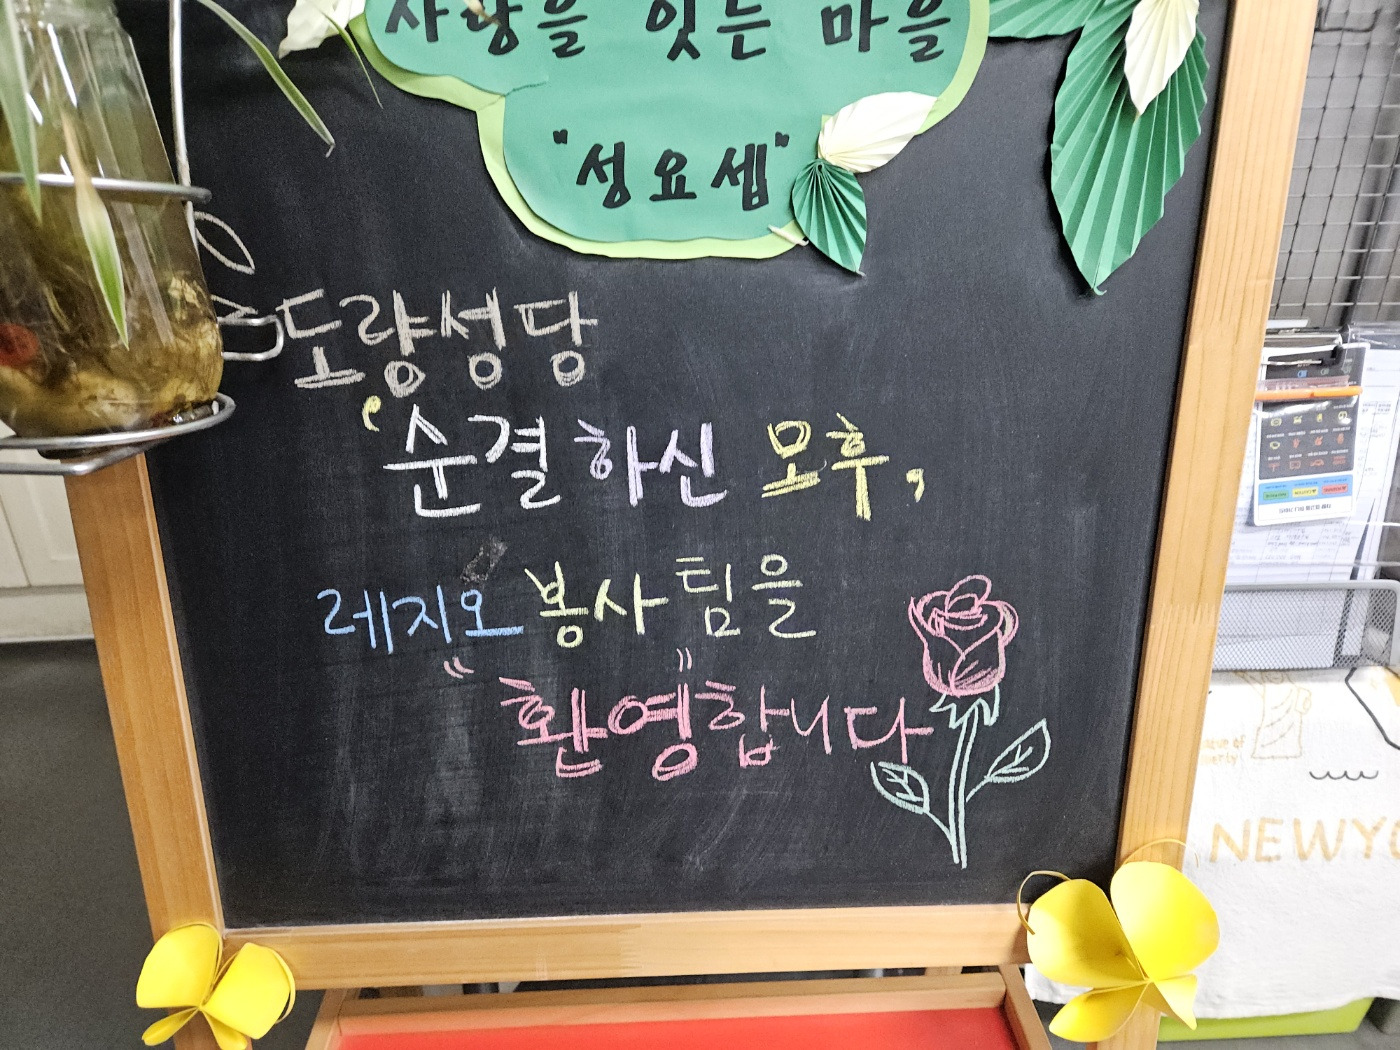 사랑을 잇는 마을
"성요셉"
도량성당
'순결하신 모후,
레지오 봉사팀을
"환영합니다"
NEWYO